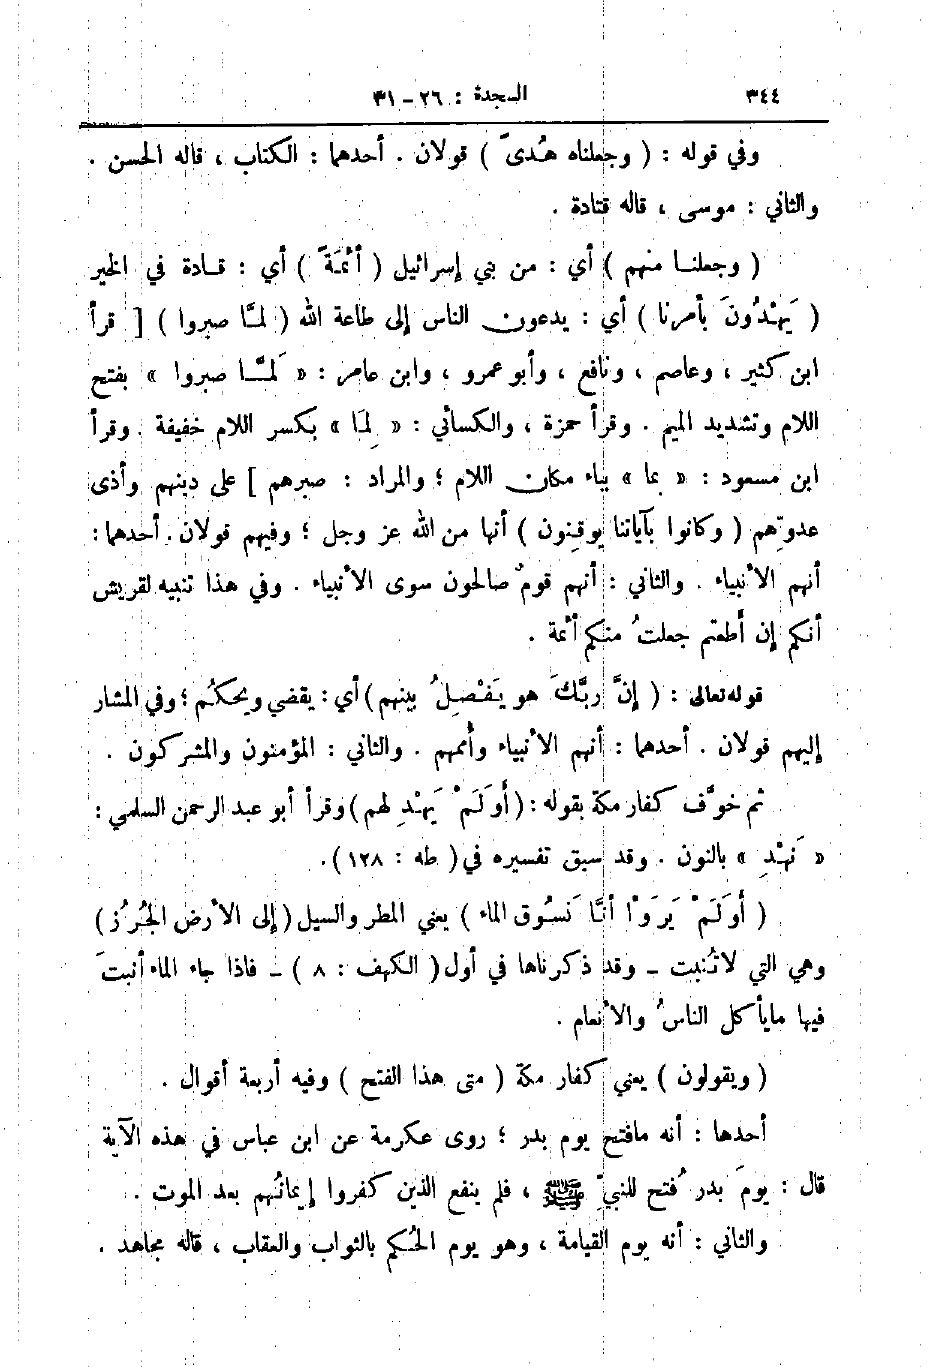 ٣٤٤ السجدة : ٢٦ – ٣١
وفي قوله : ( وجعلناه هُدىً ) قولان . أحدهما : الكتاب ، قاله الحسن .
والثاني : موسى ، قاله قتادة .
( وجعلنـا منهم ) أي : من بني إسرائيل ( أئمَّةً ) أي : قـادة في الخير
( يَهْدُونَ بأمرنا ) أي : يدعون الناس إلى طاعة الله ( لمَّا صبروا ) [ قرأ
ابن كثير ، وعاصم ، ونافع ، وأبو عمرو ، وابن عامر : « لَمَّـا صبروا » بفتح
اللام وتشديد الميم . وقرأ حمزة ، والكسائي : « لِمَا » بكسر اللام خفيفة . وقرأ
ابن مسعود : « بما » بباء مكان اللام ؛ والمراد : صبرهم ] على دينهم وأذى
عدوِّهم ( وكانوا بآياتنا يوقِنون ) أنها من الله عز وجل ؛ وفيهم قولان . أحدهما :
أنهم الأنبياء . والثاني : أنهم قومٌ صالحون سوى الأنبياء . وفي هذا تنبيه لقريش
أنكم إن أَطعتم جعلتُ منكم أئمة .
قوله تعالى : ( إنَّ ربَّكَ هو يَفْصِلُ بينهم ) أي : يقضي ويحكُم ؛ وفي المشار
إليهم قولان . أحدهما : أنهم الأنبياء وأُممهم . والثاني : المؤمنون والمشركون .
ثم خوَّف كفار مكة بقوله : ( أَوَلَمْ يَهْدِ لهم ) وقرأ أبو عبد الرحمن السلمي :
« نَهْدِ » بالنون . وقد سبق تفسيره في ( طه : ١٢٨ ) .
( أَوَلَمْ يَرَوْا أنَّا نَسُوق الماء ) يعني المطر والسيل ( إلى الأرض الجُرُز )
وهي التي لاتُنبت – وقد ذكرناها في أول ( الكهف : ٨ ) – فاذا جاء الماء أنبتَ
فيها مايأكل الناسُ والأنعام .
( ويقولون ) يعني كفار مكة ( متى هذا الفتح ) وفيه أربعة أقوال .
أحدها : أنه مافتح يوم بدر ؛ روى عكرمة عن ابن عباس في هذه الآية
قال : يومَ بدر فُتح للنبيِّ ﷺ ، فلم ينفع الذين كفروا إيمانُهم بعد الموت .
والثاني : أنه يوم القيامة ، وهو يوم الحُكم بالثواب والعقاب ، قاله مجاهد .